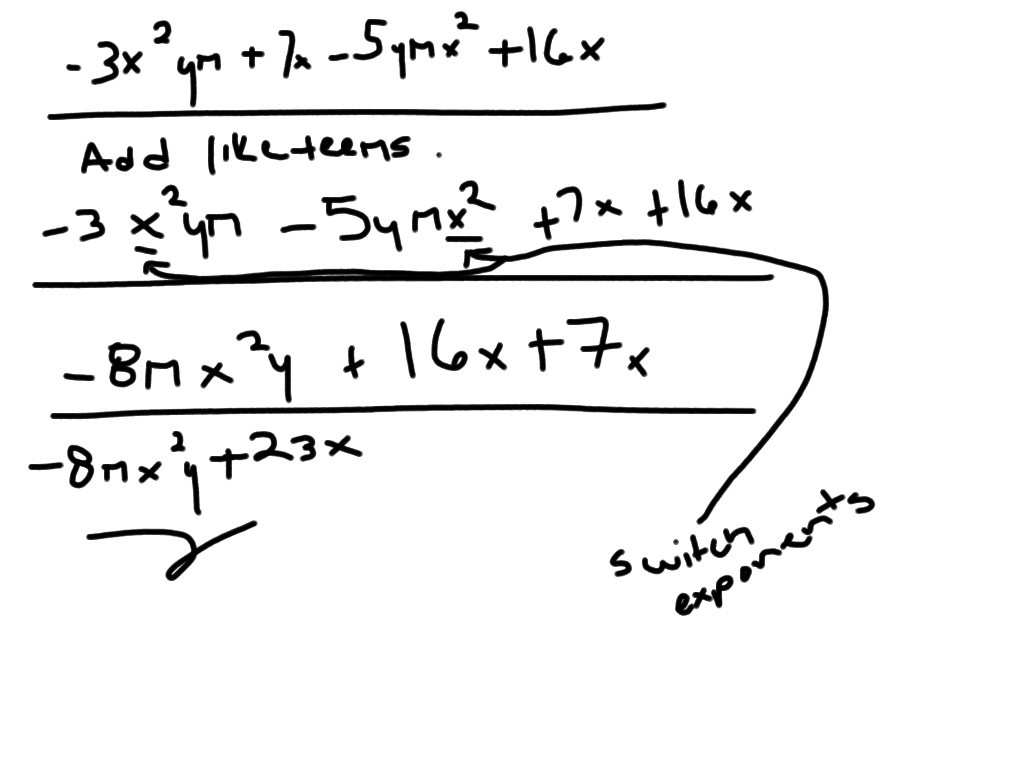 -3x²ym + 7x - 5ymx² + 16x
Add like teems.
-3 x²ym - 5ymx² + 7x + 16x
-8mx²y + 16x + 7x
-8mx²y + 23x
switch
exponents